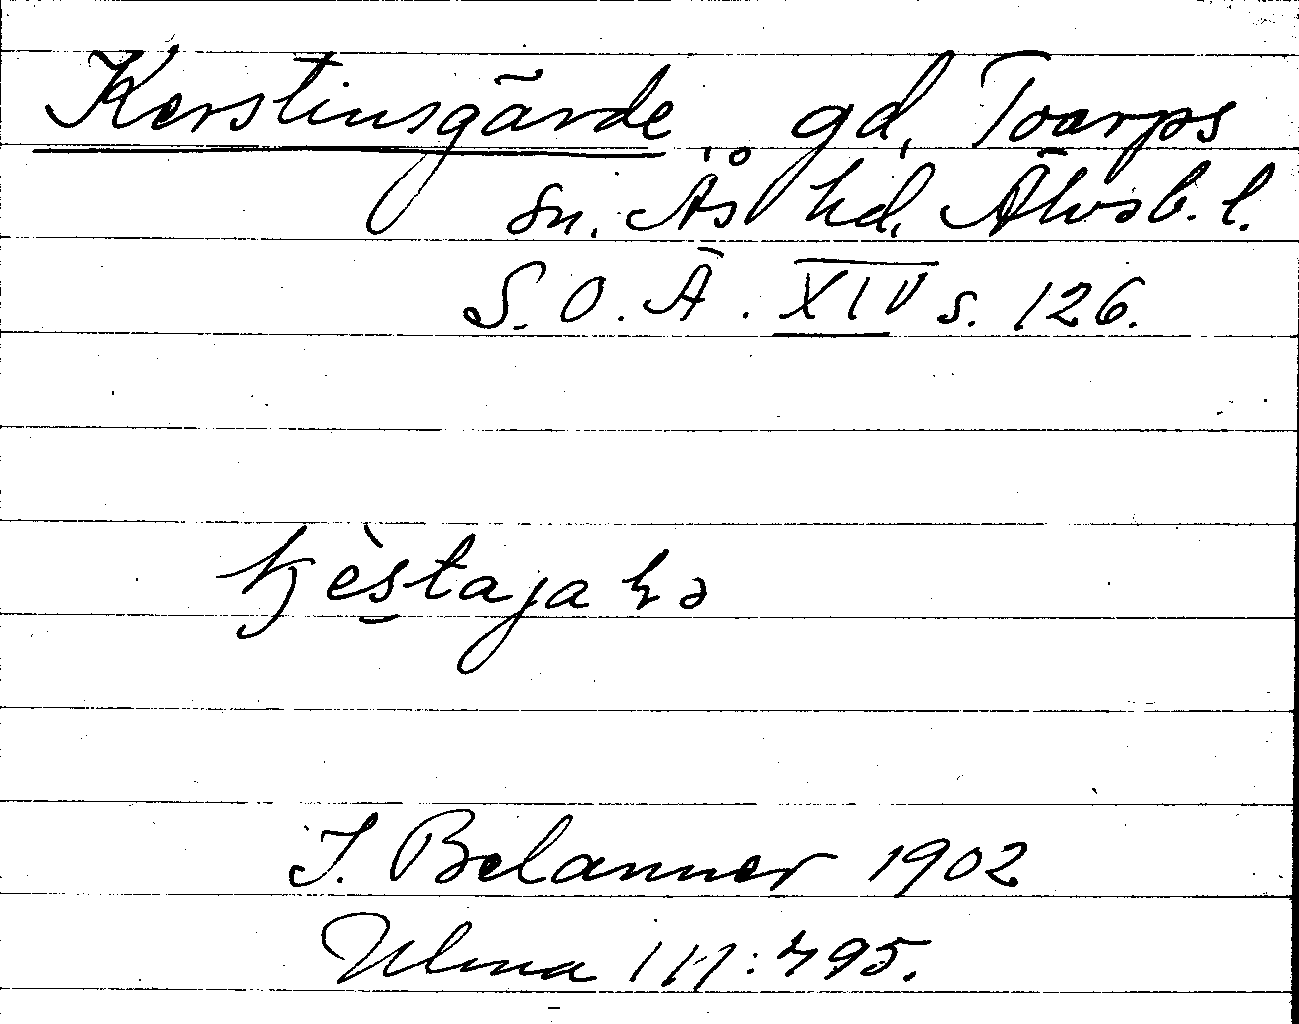 Kerstinsgärde gd, Toarps
sn. Ås hd. Älvsb. l.
S. O. Ä. XIV s. 126.
J. Belanner 1902
Ulma 111:795.